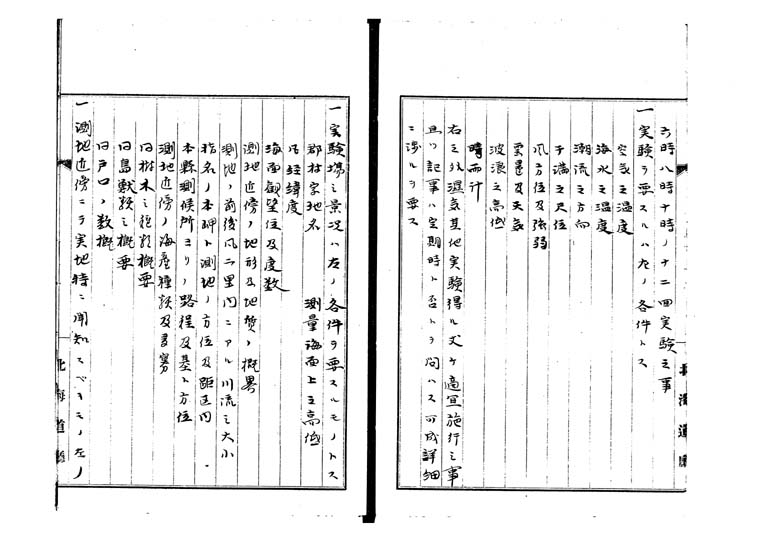 六時八時十時ノ十二回実験之事
一実験ヲ要スルハ左ノ各件トス
空気之温度
海水之温度
潮流之方向
干満之尺位
風方位及強弱
雲量及天気
波浪之高低
晴雨計
右之外湿気其他実験得ル丈ケ適宜施行之事
且ツ記事ハ定期時ト否トヲ問ハス可成詳細
ニ渉ルヲ要ス
北海道庁
一実験場之景况ハ左ノ各件ヲ要スルモノトス
郡村字地名　測量海面上之高低
経緯度
海面観望位及度数
測地近傍ノ地形及地質ノ概畧
測地ノ前後二里内ニアル川流之大小
指名ノ本岬ト測地ノ方位及距区内
本縣測候所ヨリノ路程及基ト方位
測地近傍ノ海産種類及多寡
同樹木之種類概要
同鳥獣類之概要
同戸口ノ数概
一測地近傍ニテ実地特ニ聞知スベキモノ左ノ
北海道庁